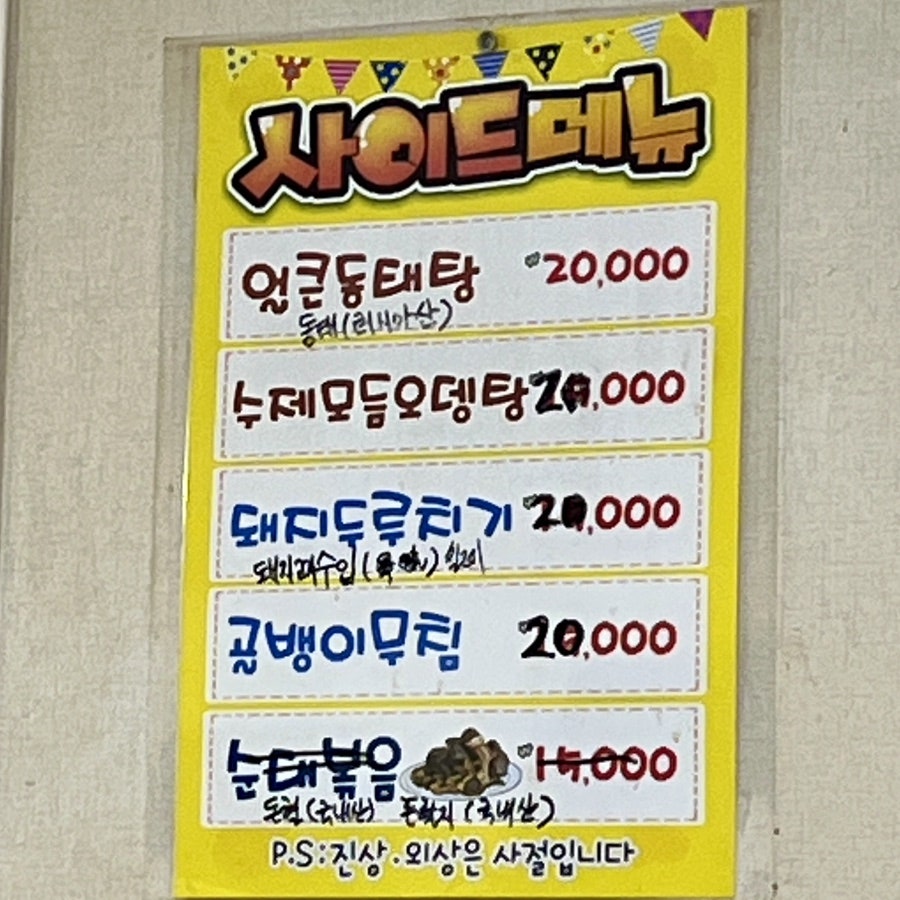 사이드메뉴
얼큰동태탕 ₩20,000
동태(러시아산)
수제모듬오뎅탕 20,000
돼지두루치기 20,000
돼지고기수입
골뱅이무침 20,000
순대볶음 ₩15,000
돈혈(국내산) 돈막지(국내산)
P.S:진상.외상은 사절입니다